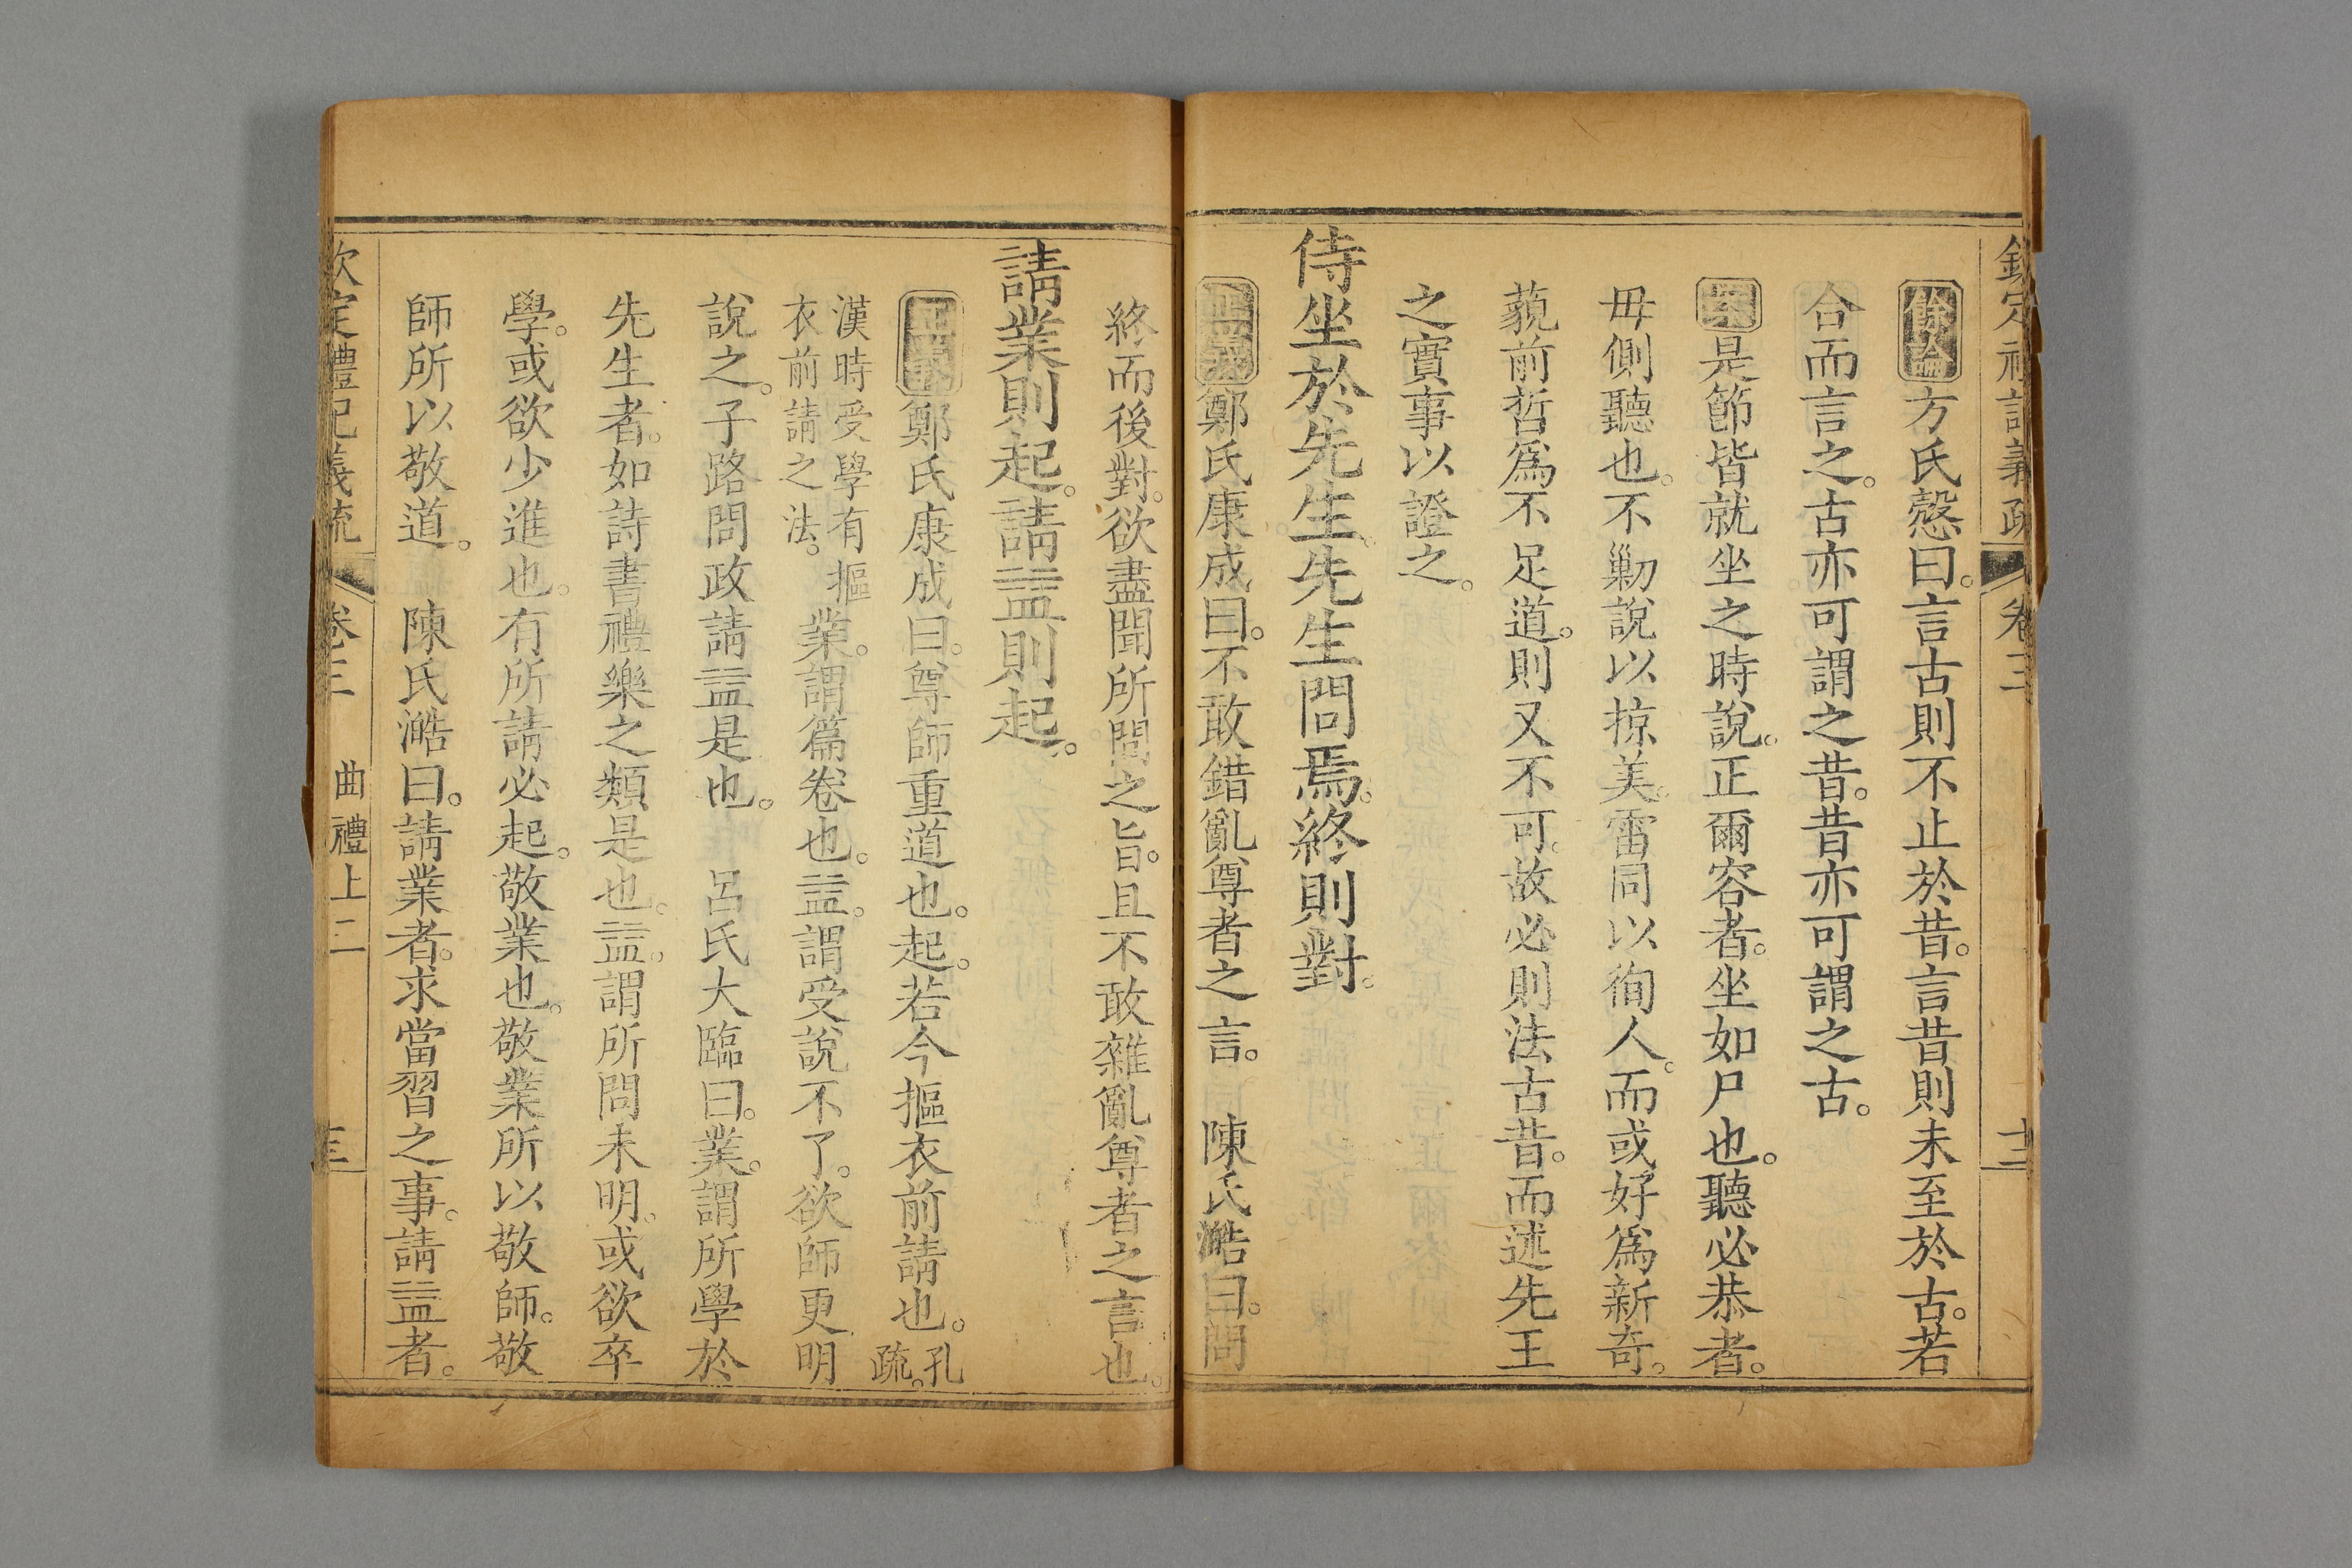 欽定禮記義疏 卷三 十二
餘論方氏慤曰。言古則不止於昔。言昔則未至於古。若
合而言之。古亦可謂之昔。昔亦可謂之古。
案是節皆就坐之時說。正爾容者。坐如尸也。聽必恭者。
毋側聽也。不勦說以掠美。雷同以徇人。而或好爲新奇。
藐前哲爲不足道。則又不可。故必則法古昔。而述先王
之實事以證之。
侍坐於先生。先生問焉。終則對。
正義鄭氏康成曰。不敢錯亂尊者之言。 陳氏澔曰。問
終而後對。欲盡聞所問之旨。且不敢雜亂尊者之言也。
請業則起。請益則起。
正義鄭氏康成曰。尊師重道也。起。若今摳衣前請也。孔疏。
漢時受學有摳衣前請之法。業。謂篇卷也。益。謂受說不了。欲師更明
說之。子路問政請益是也。 呂氏大臨曰。業。謂所學於
先生者。如詩書禮樂之類是也。益。謂所問未明。或欲卒
學。或欲少進也。有所請必起。敬業也。敬業所以敬師。敬
師所以敬道。 陳氏澔曰。請業者。求當習之事。請益者。
欽定禮記義疏 卷三 曲禮上二